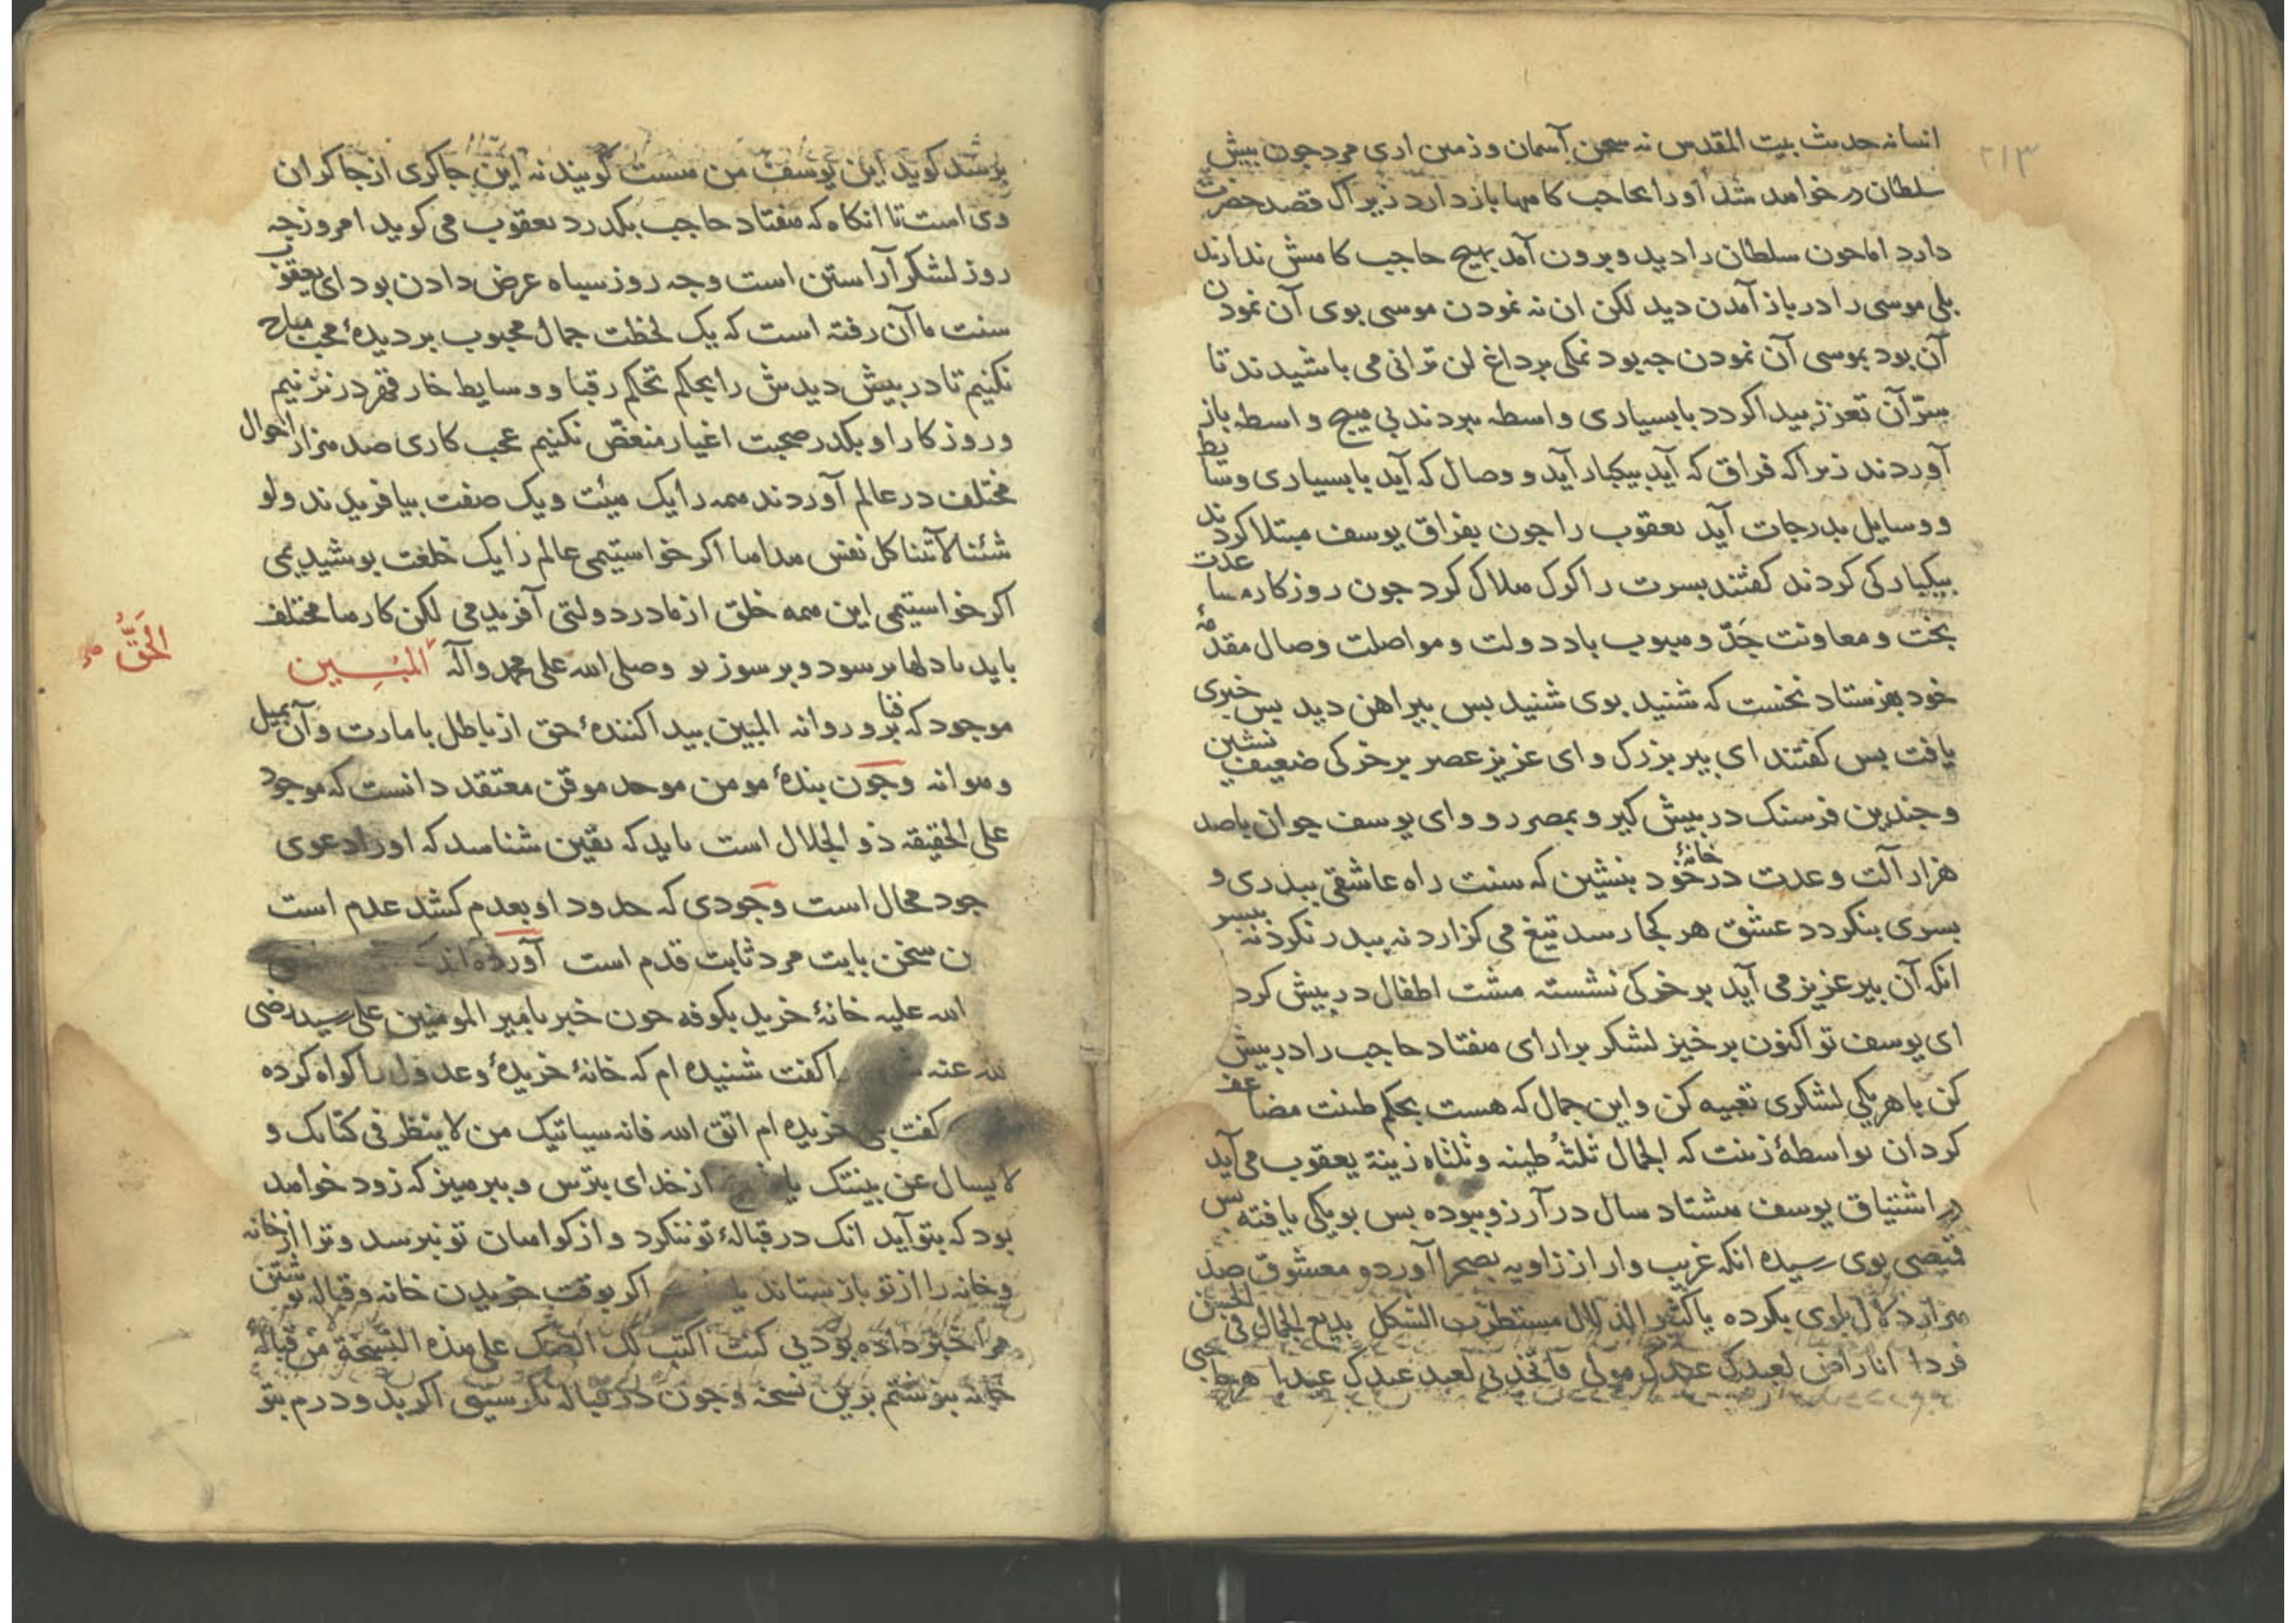 ۲۱۳
انسانه حدیث بیت المقدس نه سخن آسمان و زمین اری مرد جون بیش
سلطان در خواهد شد او را بحاجب کامها باز دارد زیراک قصد حضرت
دارد اما جون سلطان را دید و برون آمد بهیج حاجب کامش ندارند
بلی موسی را در باز آمدن دید لکن ان نه نمودن موسی بوی آن نمودن
آن بود بموسی آن نمودن جه بود نمکی بر داغ لن ترانی می باشیدند تا
سر آن تعزز بیدا کردد با بسیاری واسطه ببردند بی هیج واسطه باز
آوردند زیراکه فراق که آید بیکبار آید و وصال که آید با بسیاری وسایط
و وسایل بدرجات آید یعقوب را جون بفراق یوسف مبتلا کردند
بیکبارکی کردند کفتند بسرت را کرک هلاک کرد جون روزکار مساعدت
بخت و معاونت جد و هبوب باد دولت و مواصلت وصال مقدمۀ
خود بفرستاد نخست که شنید بوی شنید بس بیراهن دید بس خبری
یافت بس کفتند ای بیر بزرک و ای عزیز عصر بر خرکی ضعیف نشین
و جندین فرسنک در بیش کیر و بمصر رو و ای یوسف جوان با صد
هزار آلت و عدت در خانۀ خود بنشین که سنت راه عاشقی ببدری و
بسری بنکردد عشق هر کجا رسد تیغ می کزارد نه ببدر نکرد نه ببسر
انکه آن بیر عزیز می آید بر خرکی نشسته مشت اطفال در بیش کرد
ای یوسف تو اکنون بر خیز لشکر برارای هفتاد حاجب را در بیش
کن با هر یکی لشکری تعبیه کن و این جمال که هست بحکم طینت مضاعف
کردان بواسطۀ زینت که الجمال ثلثه طینه و ثلثاه زینة یعقوب می آید
در اشتیاق یوسف هشتاد سال در آرزو ببوده بس بویکی یافته بس
قمیصی بوی رسیده انکه غریب وار از زاویه بصحرا آورد و معشوق صد
هزار دلال بلوی بکرده یا کثیر الدلال مستطرب الشکل بدیع الجمال فی الحسن
فردا انا راض لعبدک عبدک مولی فاتخذنی لعبد عبدک عبدا هر حاجبی
برسد کوید این یوسف من هست کویند نه این جاکری از جاکران
وی است تا انکاه که هفتاد حاجب بکذرد یعقوب می کوید امروز جه
روز لشکر آراستن است و جه روز سباه عرض دادن بود ای یعقوب
سنت ما آن رفته است که یک لحظت جمال محبوب بر دیدۀ محب مباح
نکنیم تا در بیش دیدش را بحکم تحکم رقبا و وسایط خار قهر در نزنیم
و روزکار او بکدر صحبت اغیار منغص نکنیم عجب کاری صد هزار احوال
مختلف در عالم آوردند همه را یک هیئت و یک صفت بیافریدند ولو
شئنا لآتینا کل نفس هداها اکر خواستیمی عالم را یک خلعت بوشیدیمی
اکر خواستیمی این همه خلق از مادر دولتی آفریدمی لکن کارها مختلف
باید تا دلها بر سود و بر سوز بو وصلی الله علی محمد وآله المبین
الحق
موجود که فنا برو روا نه المبین بیدا کنندۀ حق از باطل بامارت و آن بمیل
و هوا نه وجون بندۀ مومن موحد موقن معتقد دانست که موجود
علی الحقیقه ذو الجلال است باید که یقین شناسد که او را دعوی
جود محال است وجودی که حدود او بعدم کشد عدم است
ن سخن بابت مرد ثابت قدم است آورده اند
الله علیه خانۀ خرید بکوفه جون خبر بامیر المومنین علی رسید رضی
لله عنه را کفت شنیده ام که خانۀ خریدۀ و عدول را کواه کرده
کفت خریده ام اتق الله فانه سیاتیک من لا ینظر فی کتابک و
لا یسال عن بینتک یا از خدای بترس و ببرهیز که زود خواهد
بود که بتو آید انک در قبالۀ تو ننکرد و از کواهان تو نبرسد و ترا از خانه
و خانه را از تو باز ستاند یا اکر بوقت خریدن خانه و قباله نوشتن
مرا خبر داده بودیی کنت اکتب لک الصک علی هذه النسخة من قبالۀ
خانه بنوشتم برین نسخه و جون در قباله نکرستیی اکر بد و درم بتو